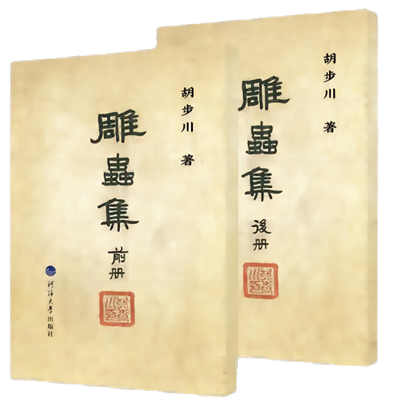 胡步川 著
雕蟲集
前册
河海大学出版社
胡步川 著
雕蟲集
後册